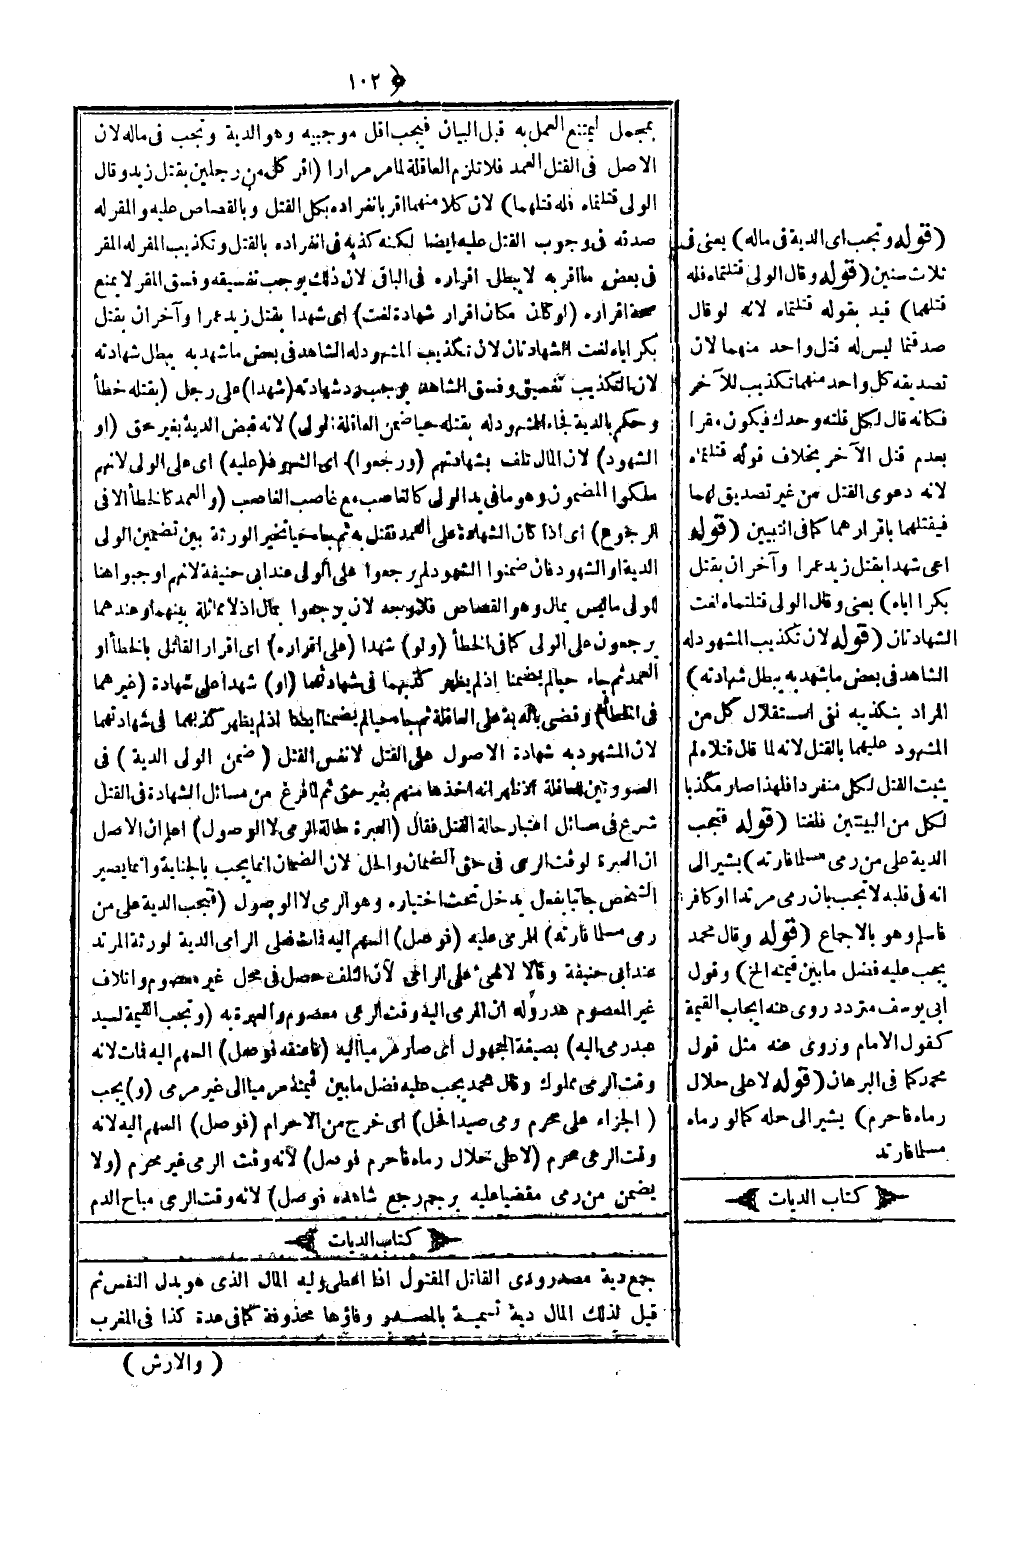 ١٠٢
بمجمل ليمتنع العمل به قبل البيان فيجب اقل موجبيه وهو الدية وتجب فى ماله لان
الاصل فى القتل العمد فلا تلزم العاقلة لما مر مرارا (اقر كل من رجلين بقتل زيد وقال
الولى قتلتماه فله قتلهما) لان كلا منهما اقر بانفراده بكل القتل وبالقصاص عليه والمقر له
صدقه فى وجوب القتل عليه ايضا لكنه كذبه فى انفراده بالقتل وتكذيب المقر له المقر
فى بعض ما اقر به لا يبطل اقراره فى الباقى لان ذلك يوجب تفسيقه وفسق المقر لا يمنع
صحة اقراره (لو كان مكان اقرار شهادة لغت) اى شهدا بقتل زيد عمرا وآخران بقتل
بكر اياه لغت الشهادتان لان تكذيب المشهود له الشاهد فى بعض ما شهد به يبطل شهادته
لان التكذيب تفسيق وفسق الشاهد يوجب رد شهادته (شهدا) على رجل (بقتله خطأ
وحكم بالدية فجاء المشهود له بقتله حيا ضمن العاقلة الولى) لانه قبض الدية بغير حق (او
الشهود) لان المال تلف بشهادتهم (ورجعوا) اى الشهود (عليه) اى على الولى لانهم
ملكوا المضمون وهو ما فى يد الولى كالغاصب مع غاصب الغاصب (والعمد كالخطأ الا فى
الرجوع) اى اذا كان الشهادة على العمد فقتل به ثم جاء حيا تخير الورثة بين تضمين الولى
الدية او الشهود فان ضمنوا الشهود لم يرجعوا على الولى عند ابى حنيفة لانهم اوجبوا هنا
للولى ما ليس بمال وهو القصاص فلا وجه لان يرجعوا بمال اذ لا مماثلة بينهما وعندهما
يرجعون على الولى كما فى الخطأ (ولو) شهدا (على اقراره) اى اقرار القاتل بالخطأ او
العمد ثم جاء حيا لم يضمنا اذ لم يظهر كذبهما فى شهادتهما (او) شهدا على شهادة (غيرهما
فى الخطأ) وقضى بالدية على العاقلة ثم جاء حيا لم يضمنا ايضا اذ لم يظهر كذبهما فى شهادتهما
لان المشهود به شهادة الاصول على القتل لا نفس القتل (ضمن الولى الدية) فى
الصورتين للعاقلة اذ ظهر انه اخذها منهم بغير حق ثم لما فرغ من مسائل الشهادة فى القتل
شرع فى مسائل اعتبار حالة القتل فقال (العبرة لحالة الرمى لا الوصول) اعلم ان الاصل
ان العبرة لوقت الرمى فى حق الضمان والحل لان الضمان انما يجب بالجناية وانما يصير
الشخص جانيا بفعل يدخل تحت اختياره وهو الرمى لا الوصول (فتجب الدية على من
رمى مسلما فارتد) المرمى عليه (فوصل) السهم اليه فمات فعلى الرامى الدية لورثة المرتد
عند ابى حنيفة وقالا لا شئ على الرامى لان التلف حصل فى محل غير معصوم واتلاف
غير المعصوم هدر وله ان المرمى اليه وقت الرمى معصوم والعبرة به (وتجب القيمة لسيد
عبد رمى اليه) بصيغة المجهول اى صار مرميا اليه (فاعتقه فوصل) السهم اليه فمات لانه
وقت الرمى مملوك وقال محمد يجب عليه فضل ما بين قيمته مرميا الى غير مرمى (و) يجب
(الجزاء على محرم رمى صيدا فحل) اى خرج من الاحرام (فوصل) السهم اليه لانه
وقت الرمى محرم (لا على حلال رماه فاحرم فوصل) لانه وقت الرمى غير محرم (ولا
يضمن من رمى مقضيا عليه برجم رجع شاهده فوصل) لانه وقت الرمى مباح الدم
كتاب الديات
جمع دية مصدر ودى القاتل المقتول اذا اعطى وليه المال الذى هو بدل النفس ثم
قيل لذلك المال دية تسمية بالمصدر وفاؤها محذوفة كما فى عدة كذا فى المغرب
(والارش)
(قوله وتجب اى الدية فى ماله) يعنى فى
ثلاث سنين (قوله وقال الولى قتلتماه فله
قتلهما) قيد بقوله قتلتماه لانه لو قال
صدقتما ليس له قتل واحد منهما لان
تصديقه كل واحد منهما تكذيب للآخر
فكأنه قال لكل قتلته وحدك فيكون مقرا
بعدم قتل الآخر بخلاف قوله قتلتماه
لانه دعوى القتل من غير تصديق لهما
فيقتلهما باقرارهما كما فى التبيين (قوله
اعى شهدا بقتل زيد عمرا وآخران بقتل
بكر اياه) يعنى وقال الولى قتلتماه لغت
الشهادتان (قوله لان تكذيب المشهود له
الشاهد فى بعض ما شهد به يبطل شهادته)
المراد بتكذيبه نفى استقلال كل من
المشهود عليهما بالقتل لانه لما قال قتلاه لم
يثبت القتل لكل منفردا فلهذا صار مكذبا
لكل من البينتين فلغتا (قوله فتجب
الدية على من رمى مسلما فارتد) يشير الى
انه فى قلبه لا تجب بان رمى مرتدا او كافر
فاسلم وهو بالاجماع (قوله وقال محمد
يجب عليه فضل ما بين قيمته الخ) وقول
ابى يوسف متردد روى عنه ايجاب القيمة
كقول الامام وروى عنه مثل قول
محمد كما فى البرهان (قوله لا على حلال
رماه فاحرم) يشير الى حله كما لو رماه
مسلما فارتد
كتاب الديات